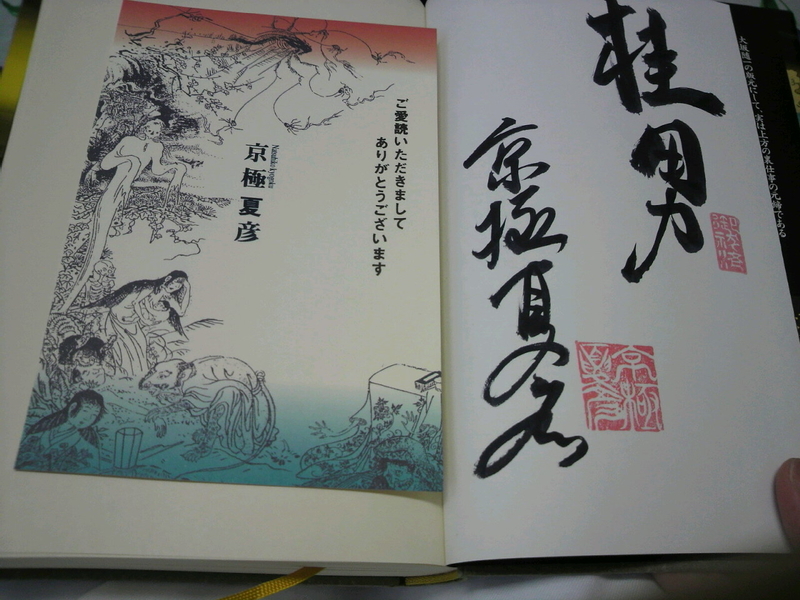 ご愛読いただきまして
ありがとうございます
京極夏彦
大坂随一の版元にして、実は上方の裏仕事の元締である
桂男
京極夏彦
御祓済
京極夏彦